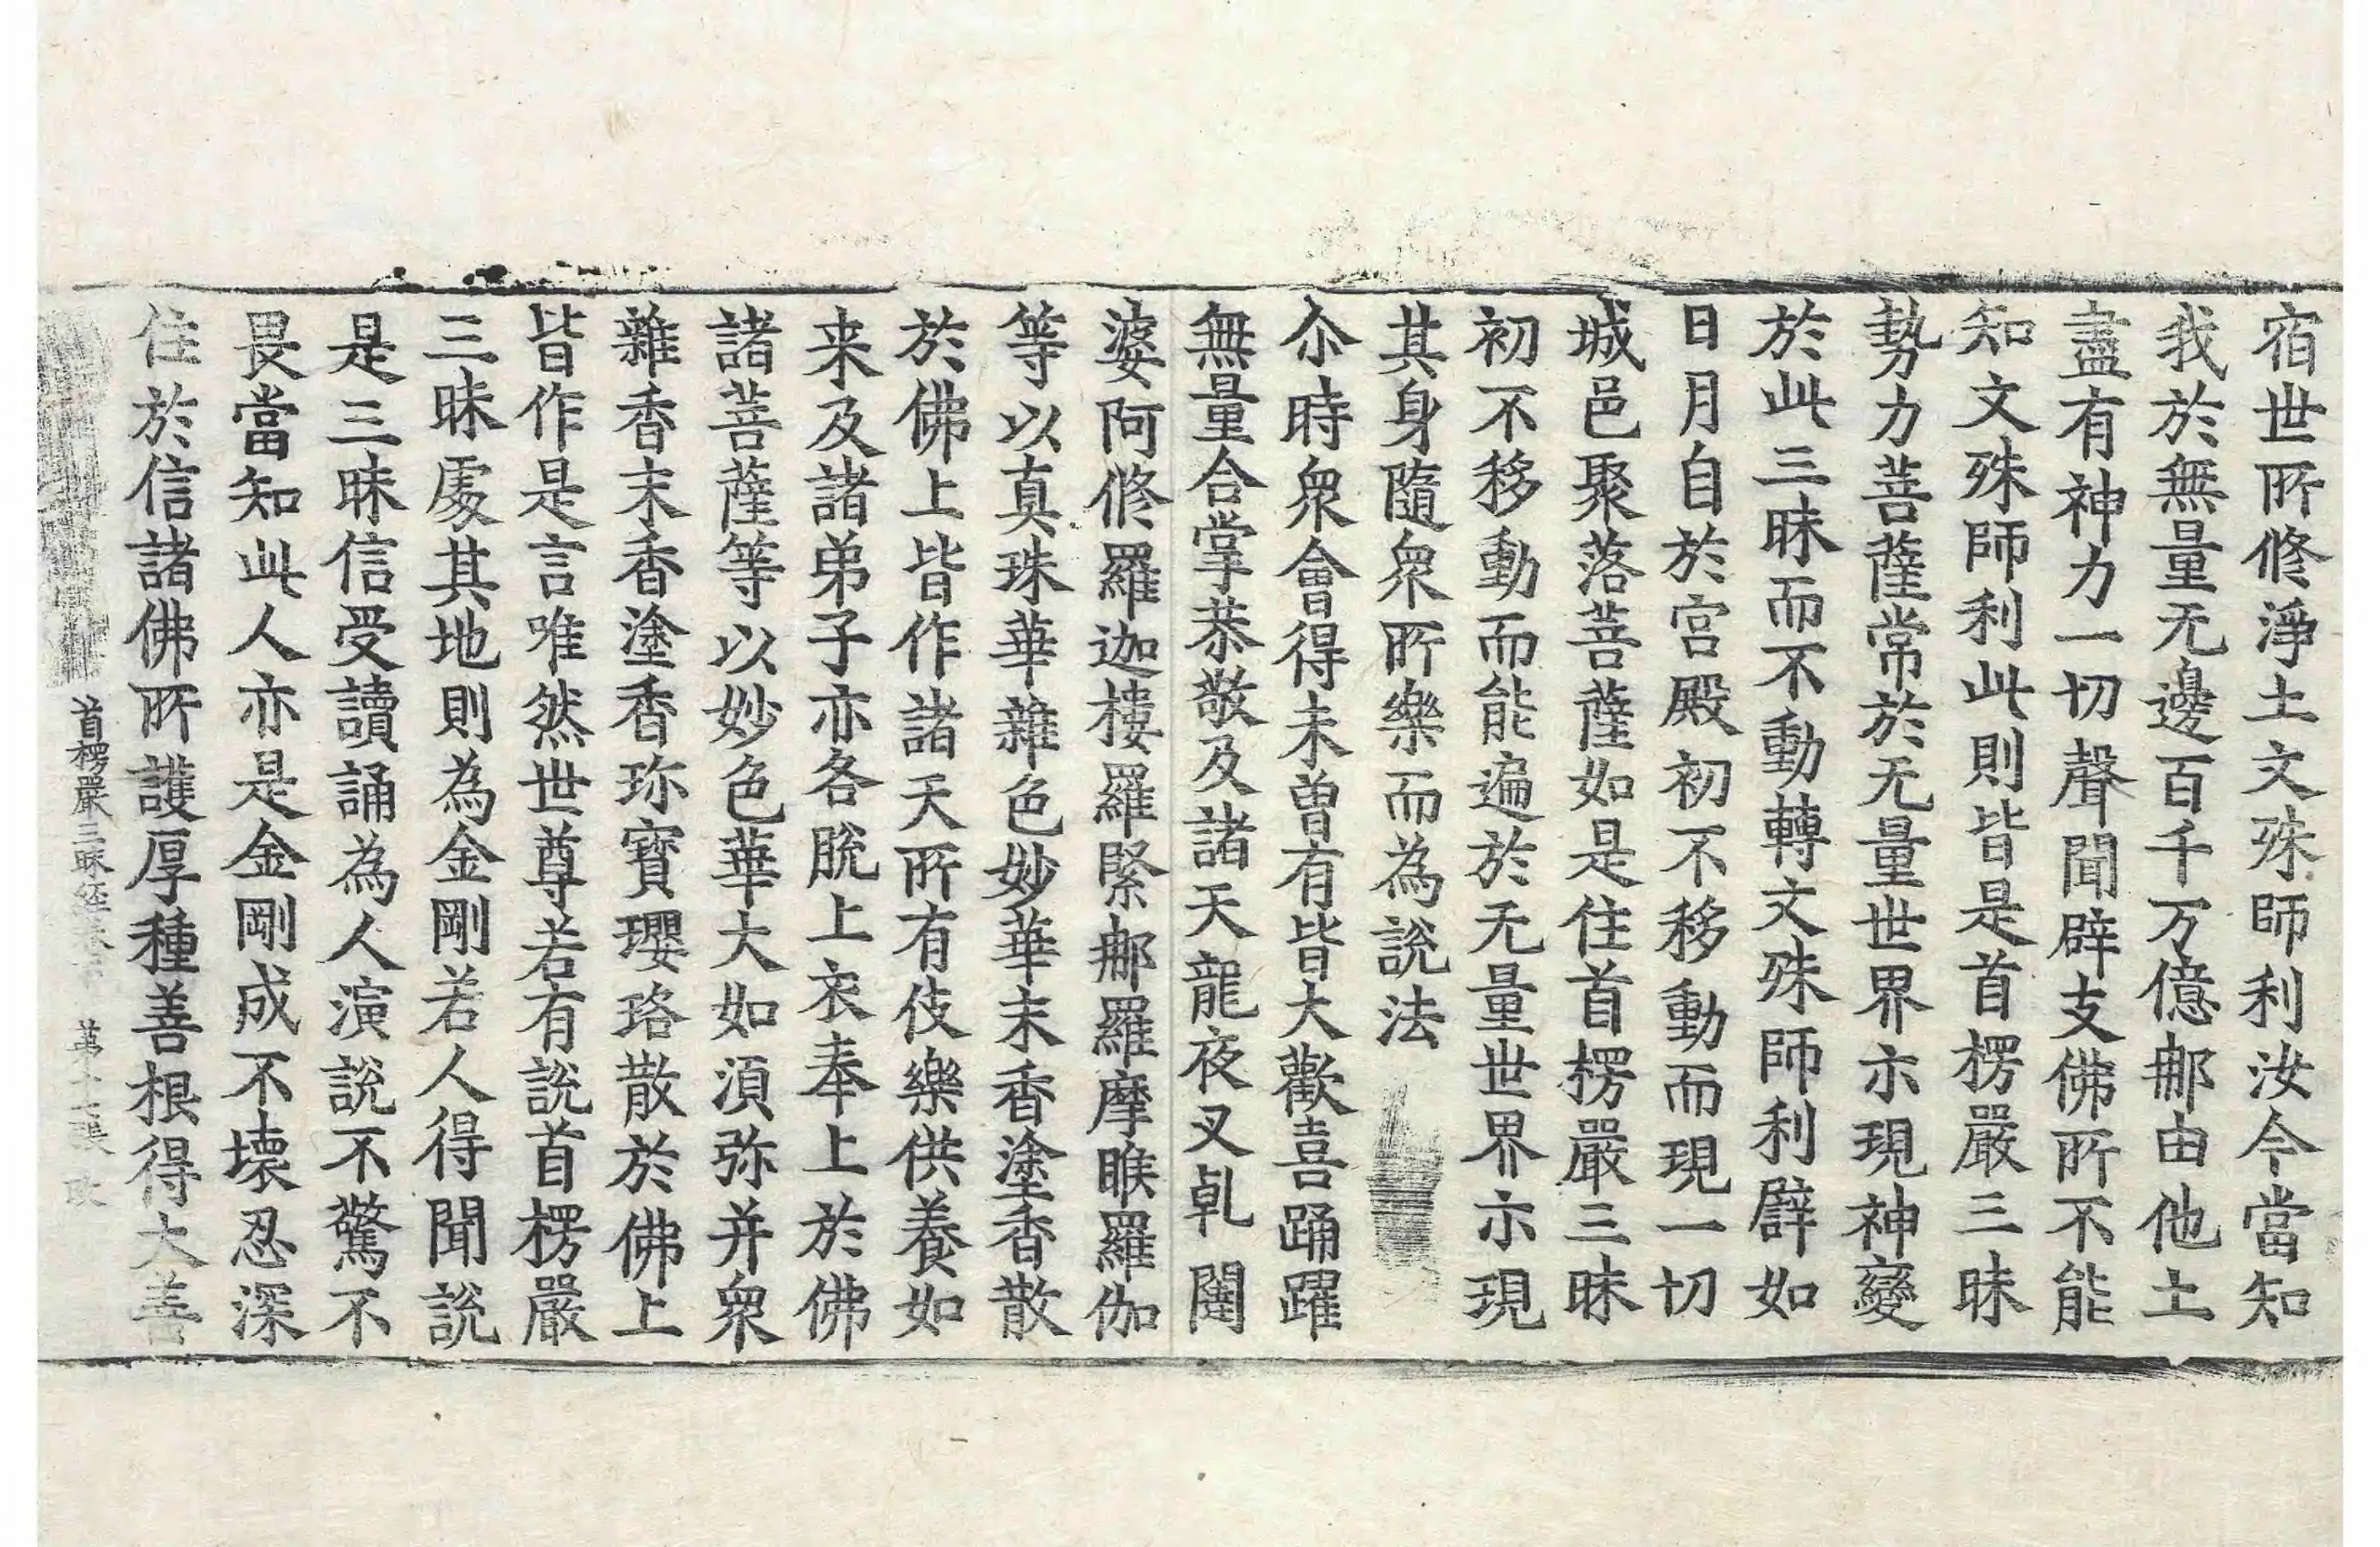 宿世所修淨土文殊師利汝今當知
我於無量无邊百千万億那由他土
盡有神力一切聲聞辟支佛所不能
知文殊師利此則皆是首楞嚴三昧
勢力菩薩常於无量世界示現神變
於此三昧而不動轉文殊師利辟如
日月自於宮殿初不移動而現一切
城邑聚落菩薩如是住首楞嚴三昧
初不移動而能遍於无量世界示現
其身隨衆所樂而為說法
尒時衆會得未曾有皆大歡喜踊躍
無量合掌恭敬及諸天龍夜叉乹闥
婆阿修羅迦樓羅緊那羅摩睺羅伽
等以真珠華雜色妙華末香塗香散
於佛上皆作諸天所有伎樂供養如
来及諸弟子亦各脫上衣奉上於佛
諸菩薩等以妙色華大如湏弥并衆
雜香末香塗香珎寶瓔珞散於佛上
皆作是言唯然世尊若有說首楞嚴
三昧處其地則為金剛若人得聞說
是三昧信受讀誦為人演說不驚不
畏當知此人亦是金剛成不壞忍深
住於信諸佛所護厚種善根得大善
首楞嚴三昧経卷下 第十七張